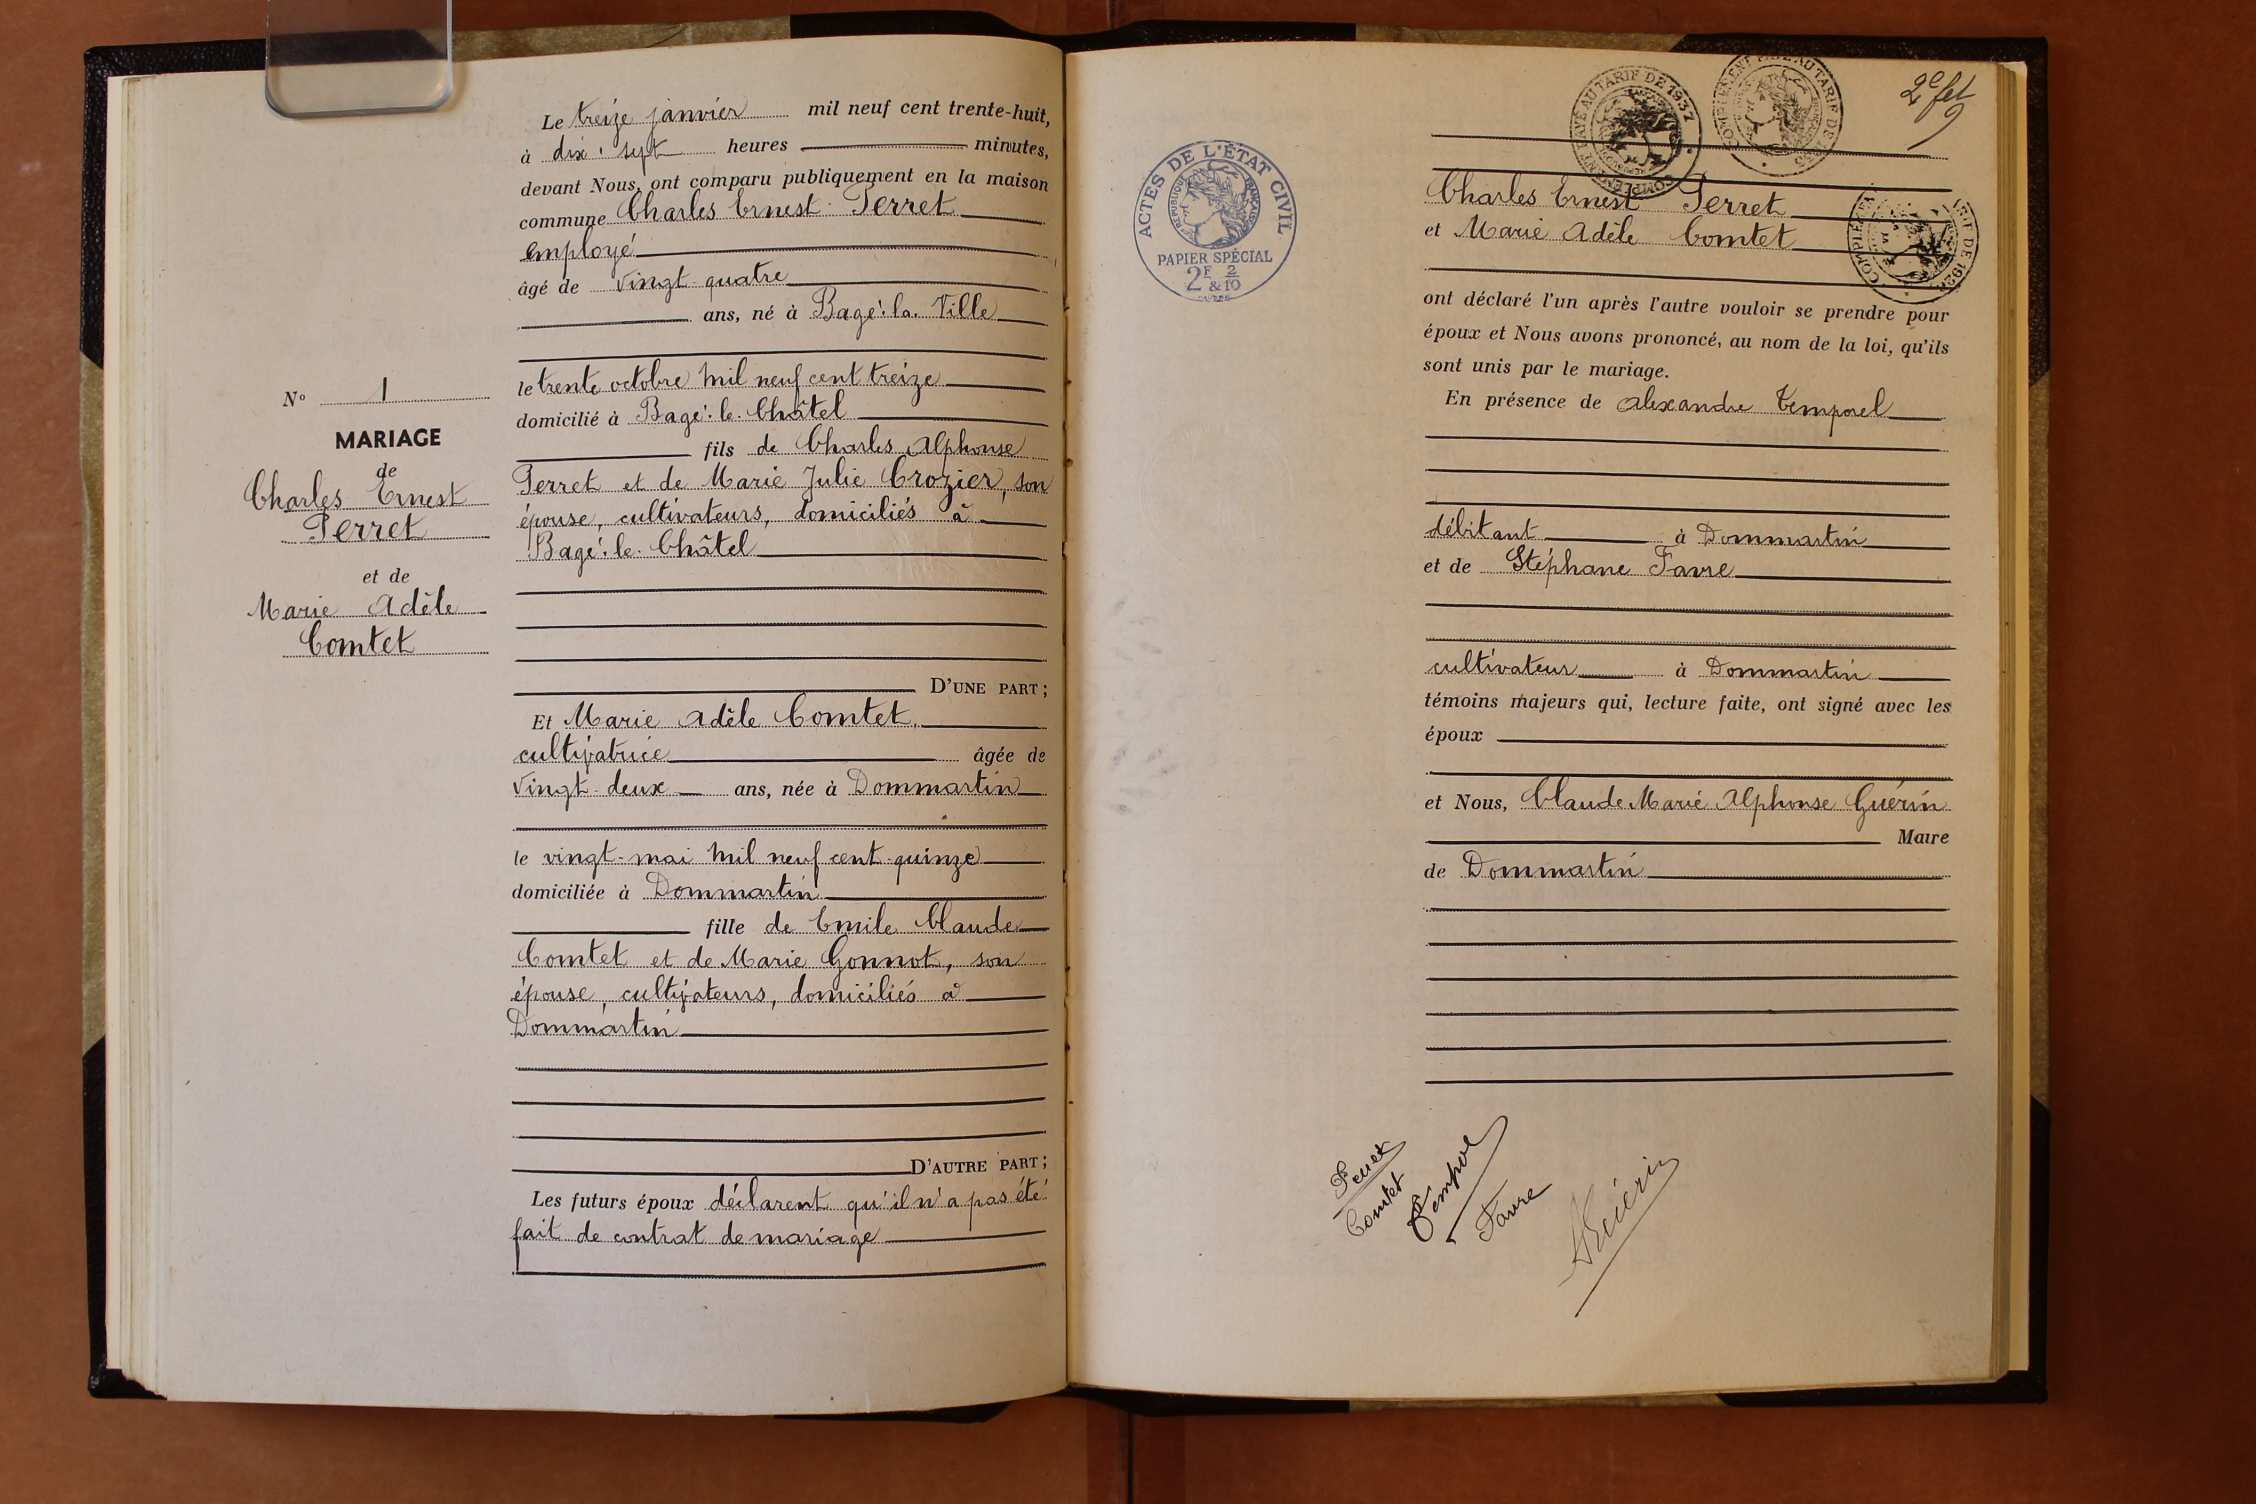 N° 1
MARIAGE
de
Charles Ernest
Perret
et de
Marie Adèle
Comtet
Le treize janvier mil neuf cent trente-huit,
à dix-sept heures minutes,
devant Nous, ont comparu publiquement en la maison
commune Charles Ernest Perret
employé
âgé de vingt-quatre
ans, né à Bagé-la-Ville
le trente octobre mil neuf cent treize
domicilié à Bagé-le-Châtel
fils de Charles Alphonse
Perret et de Marie Julie Crozier, son
épouse, cultivateurs, domiciliés à
Bagé-le-Châtel
D'UNE PART;
Et Marie Adèle Comtet,
cultivatrice âgée de
vingt-deux ans, née à Dommartin
le vingt-mai mil neuf cent quinze
domiciliée à Dommartin
fille de Emile Claude
Comtet et de Marie Gonnot, son
épouse, cultivateurs, domiciliés à
Dommartin
D'AUTRE PART;
Les futurs époux déclarent qu'il n'a pas été
fait de contrat de mariage
2e fet
ACTES DE L'ÉTAT CIVIL
RÉPUBLIQUE FRANÇAISE
PAPIER SPÉCIAL
2F & 2/10
COMPLÉMENT PAYÉ AU TARIF DE 1937
Charles Ernest Perret
et Marie Adèle Comtet
ont déclaré l'un après l'autre vouloir se prendre pour
époux et Nous avons prononcé, au nom de la loi, qu'ils
sont unis par le mariage.
En présence de Alexandre Temporel
débitant à Dommartin
et de Stéphane Favre
cultivateur à Dommartin
témoins majeurs qui, lecture faite, ont signé avec les
époux
et Nous, Claude Marie Alphonse Guérin
Maire
de Dommartin
Perret
Comtet
Favre
Guérin